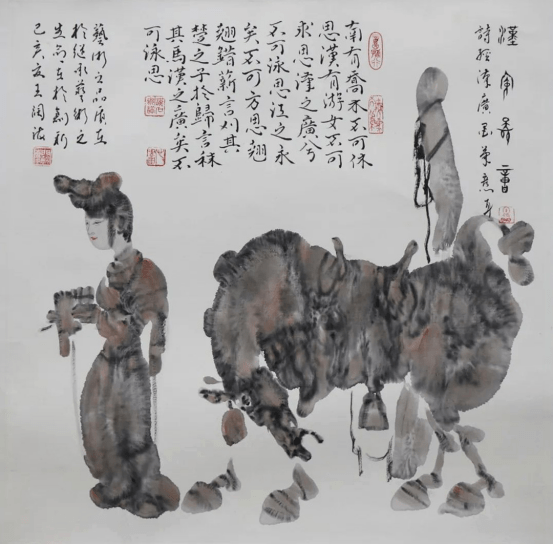 漢
詩經漢廣
南有喬木不可休
思漢有游女不可
求思漢之廣兮
不可泳思江之永
矣不可方思翹
翹錯薪言刈其
楚之子於歸言秣
其馬漢之廣矣不
可泳思
藝術之品質在
於继承藝術之
生命在於創新
己亥夏王阔海